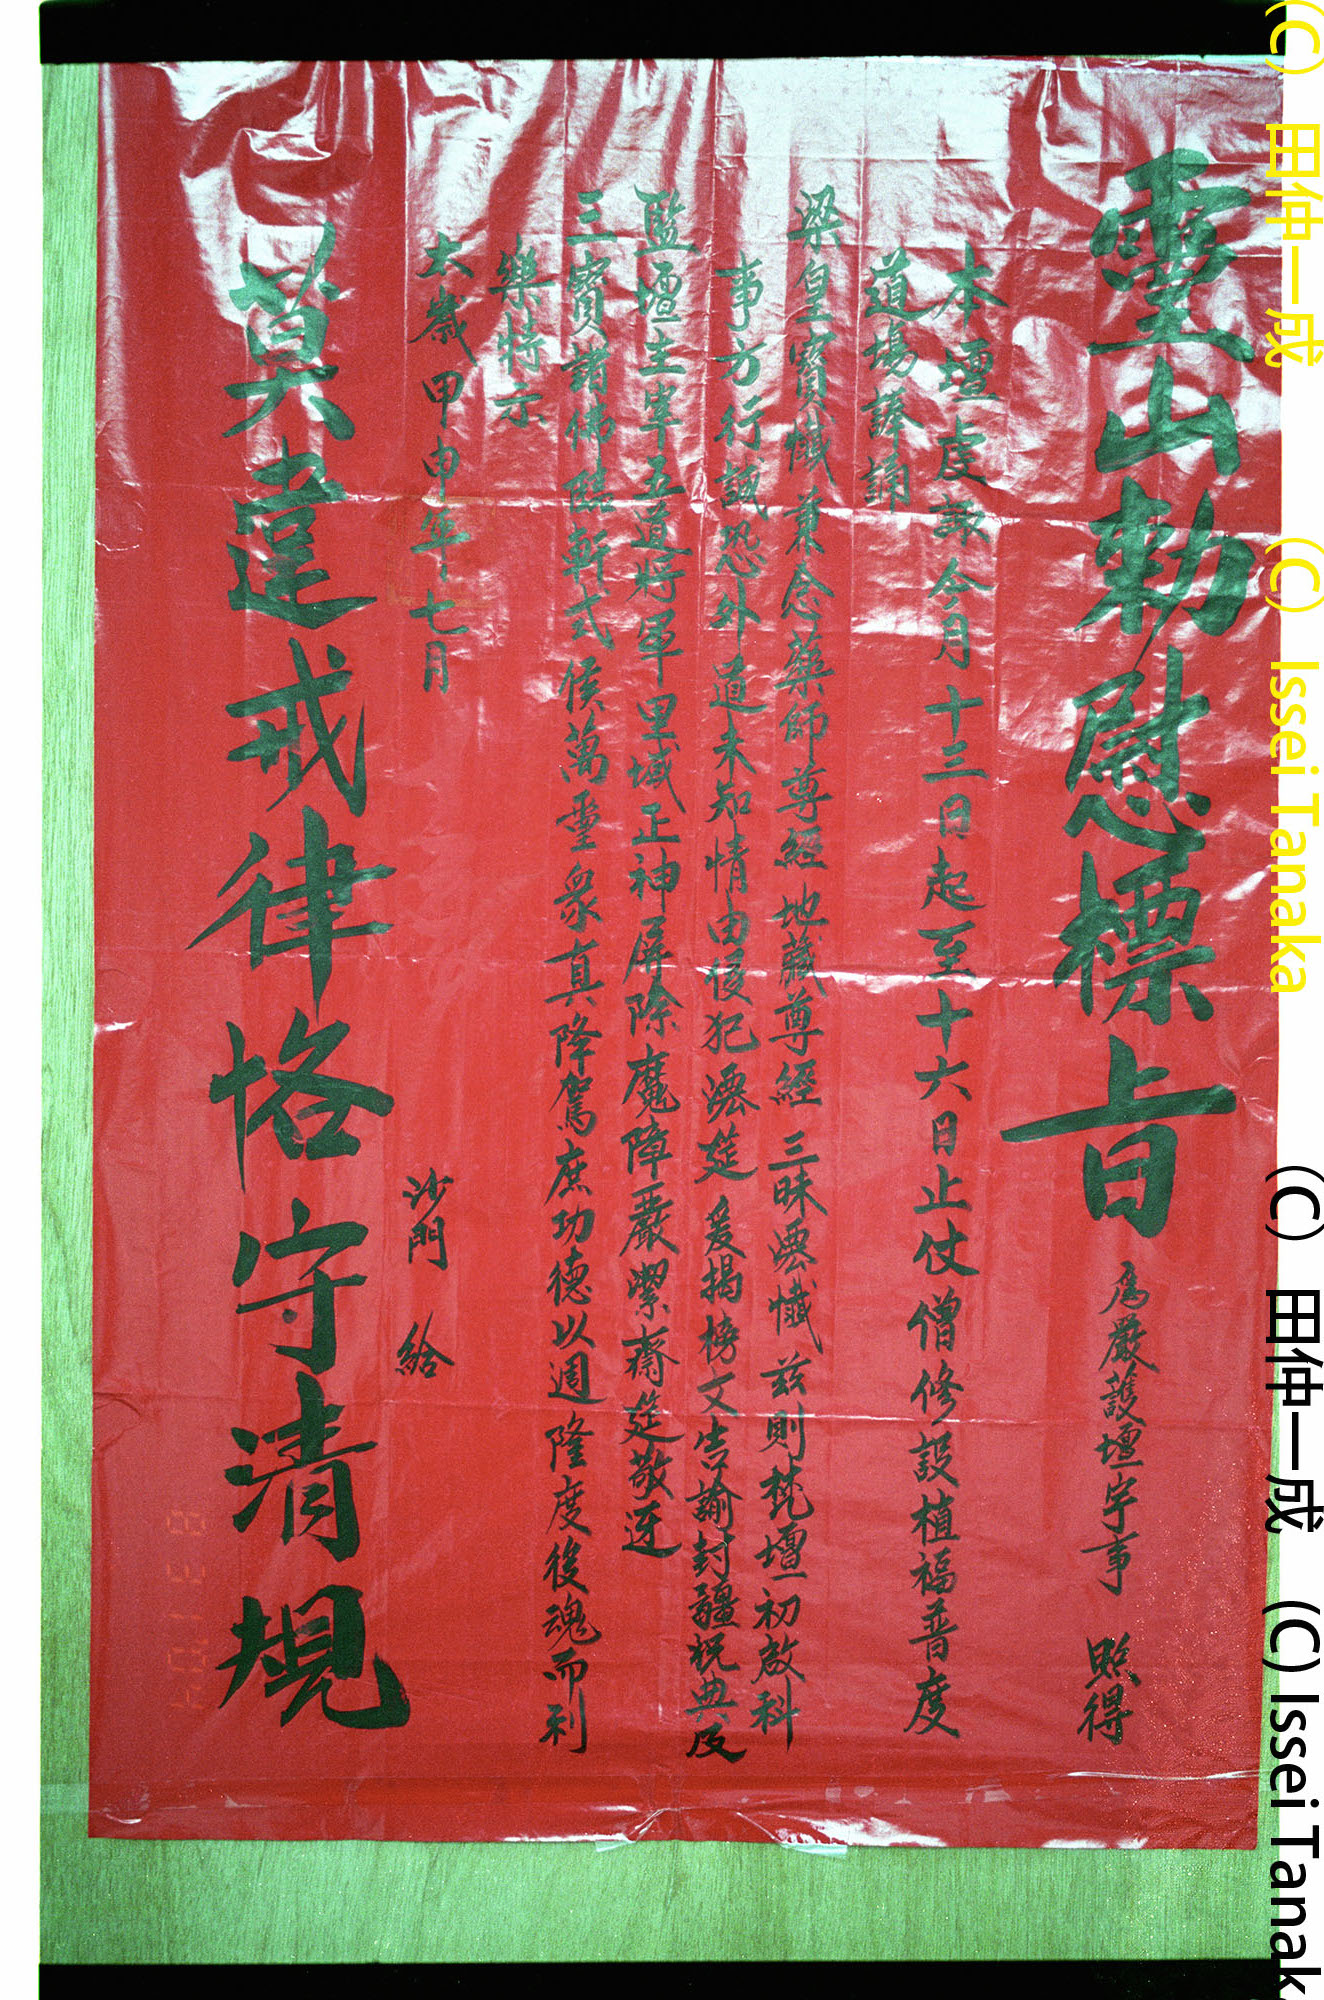 靈山勅慰標旨 為嚴護壇宇事 照得
本壇虔諏今月十三日起至十六日止仗僧修設植福普度
道場諷誦
梁皇寶懺兼念藥師尊經地藏尊經三昧灋懺茲則梵壇初啟科
事方行誠恐外道未知情由侵犯灋筵爰揭榜文告諭封疆祝典及
監壇主宰五道將軍里域正神屏除魔障嚴潔齋筵敬迓
三寶諸佛臨軒式候萬靈衆真降駕庶功德以週隆度後魂而利
樂特示
太歲甲申年七月 沙門 給
莫違戒律恪守清規
(C) 田仲一成 (C) Issei Tanaka (C) 田仲一成 (C) Issei Tanak